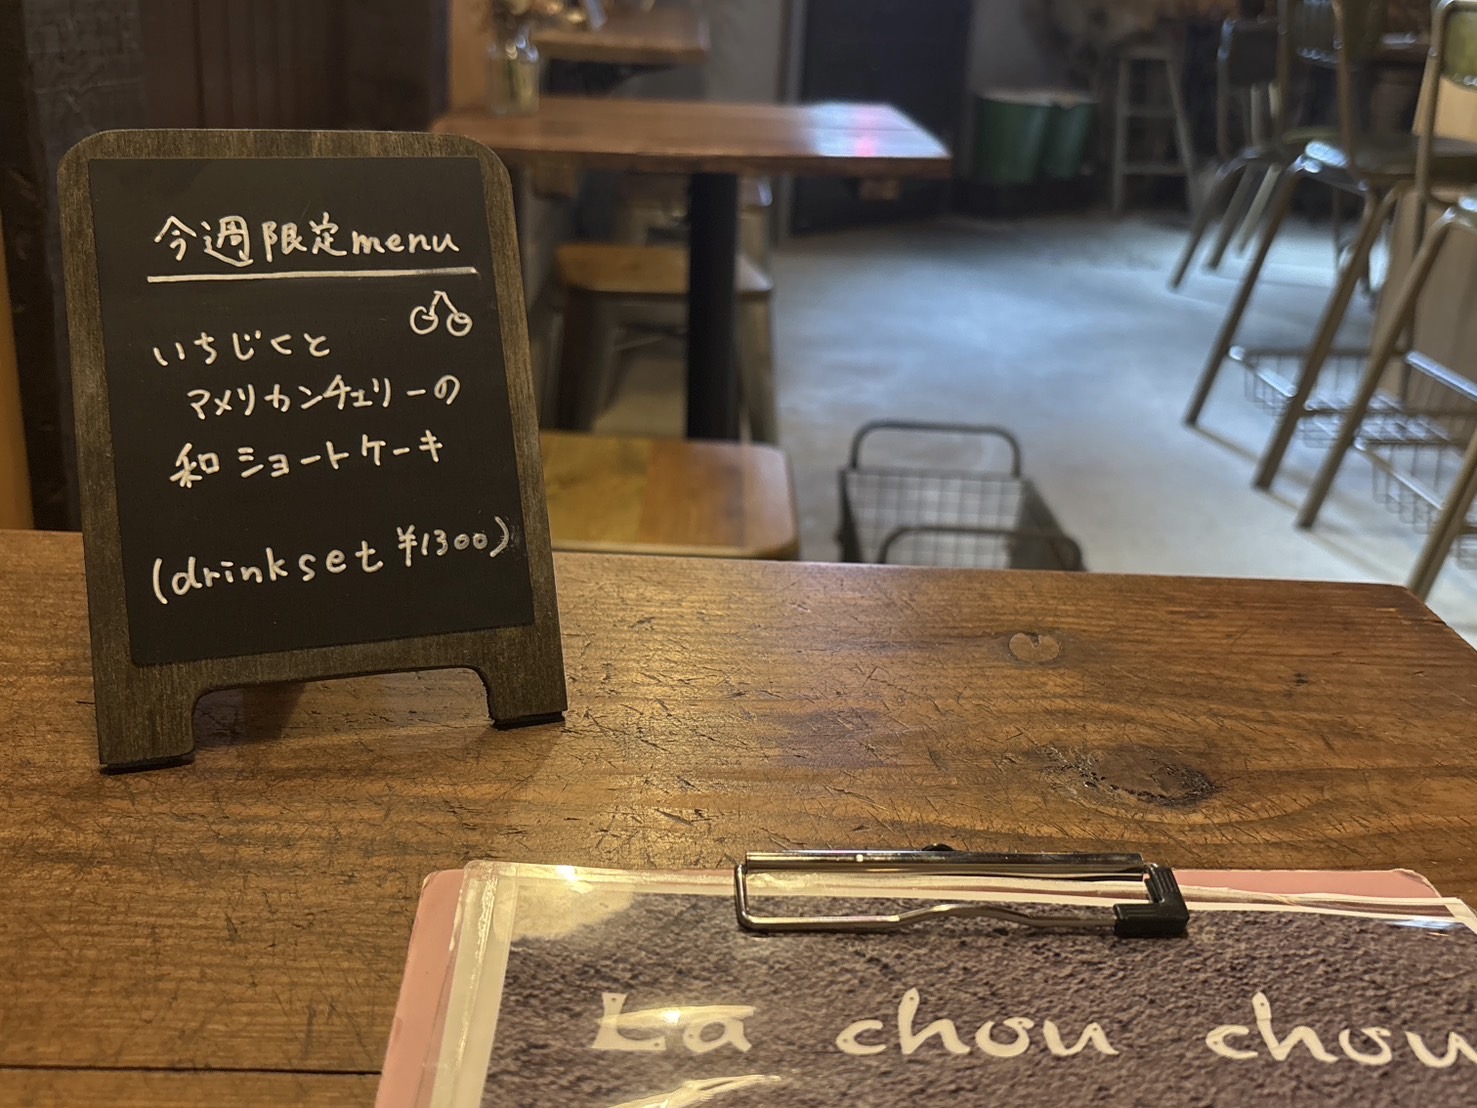 今週限定menu
いちじくと
アメリカンチェリーの
和ショートケーキ
(drinkset ¥1300)
La chou chou